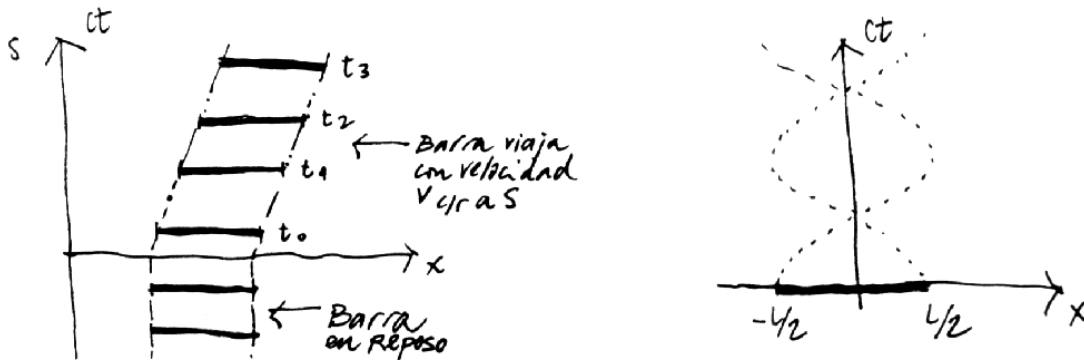 S
ct
t₃
t₂
t₁
t₀
Barra viaja
con velocidad
V c/r a S
x
Barra
en Reposo
ct
-L/2
L/2
x